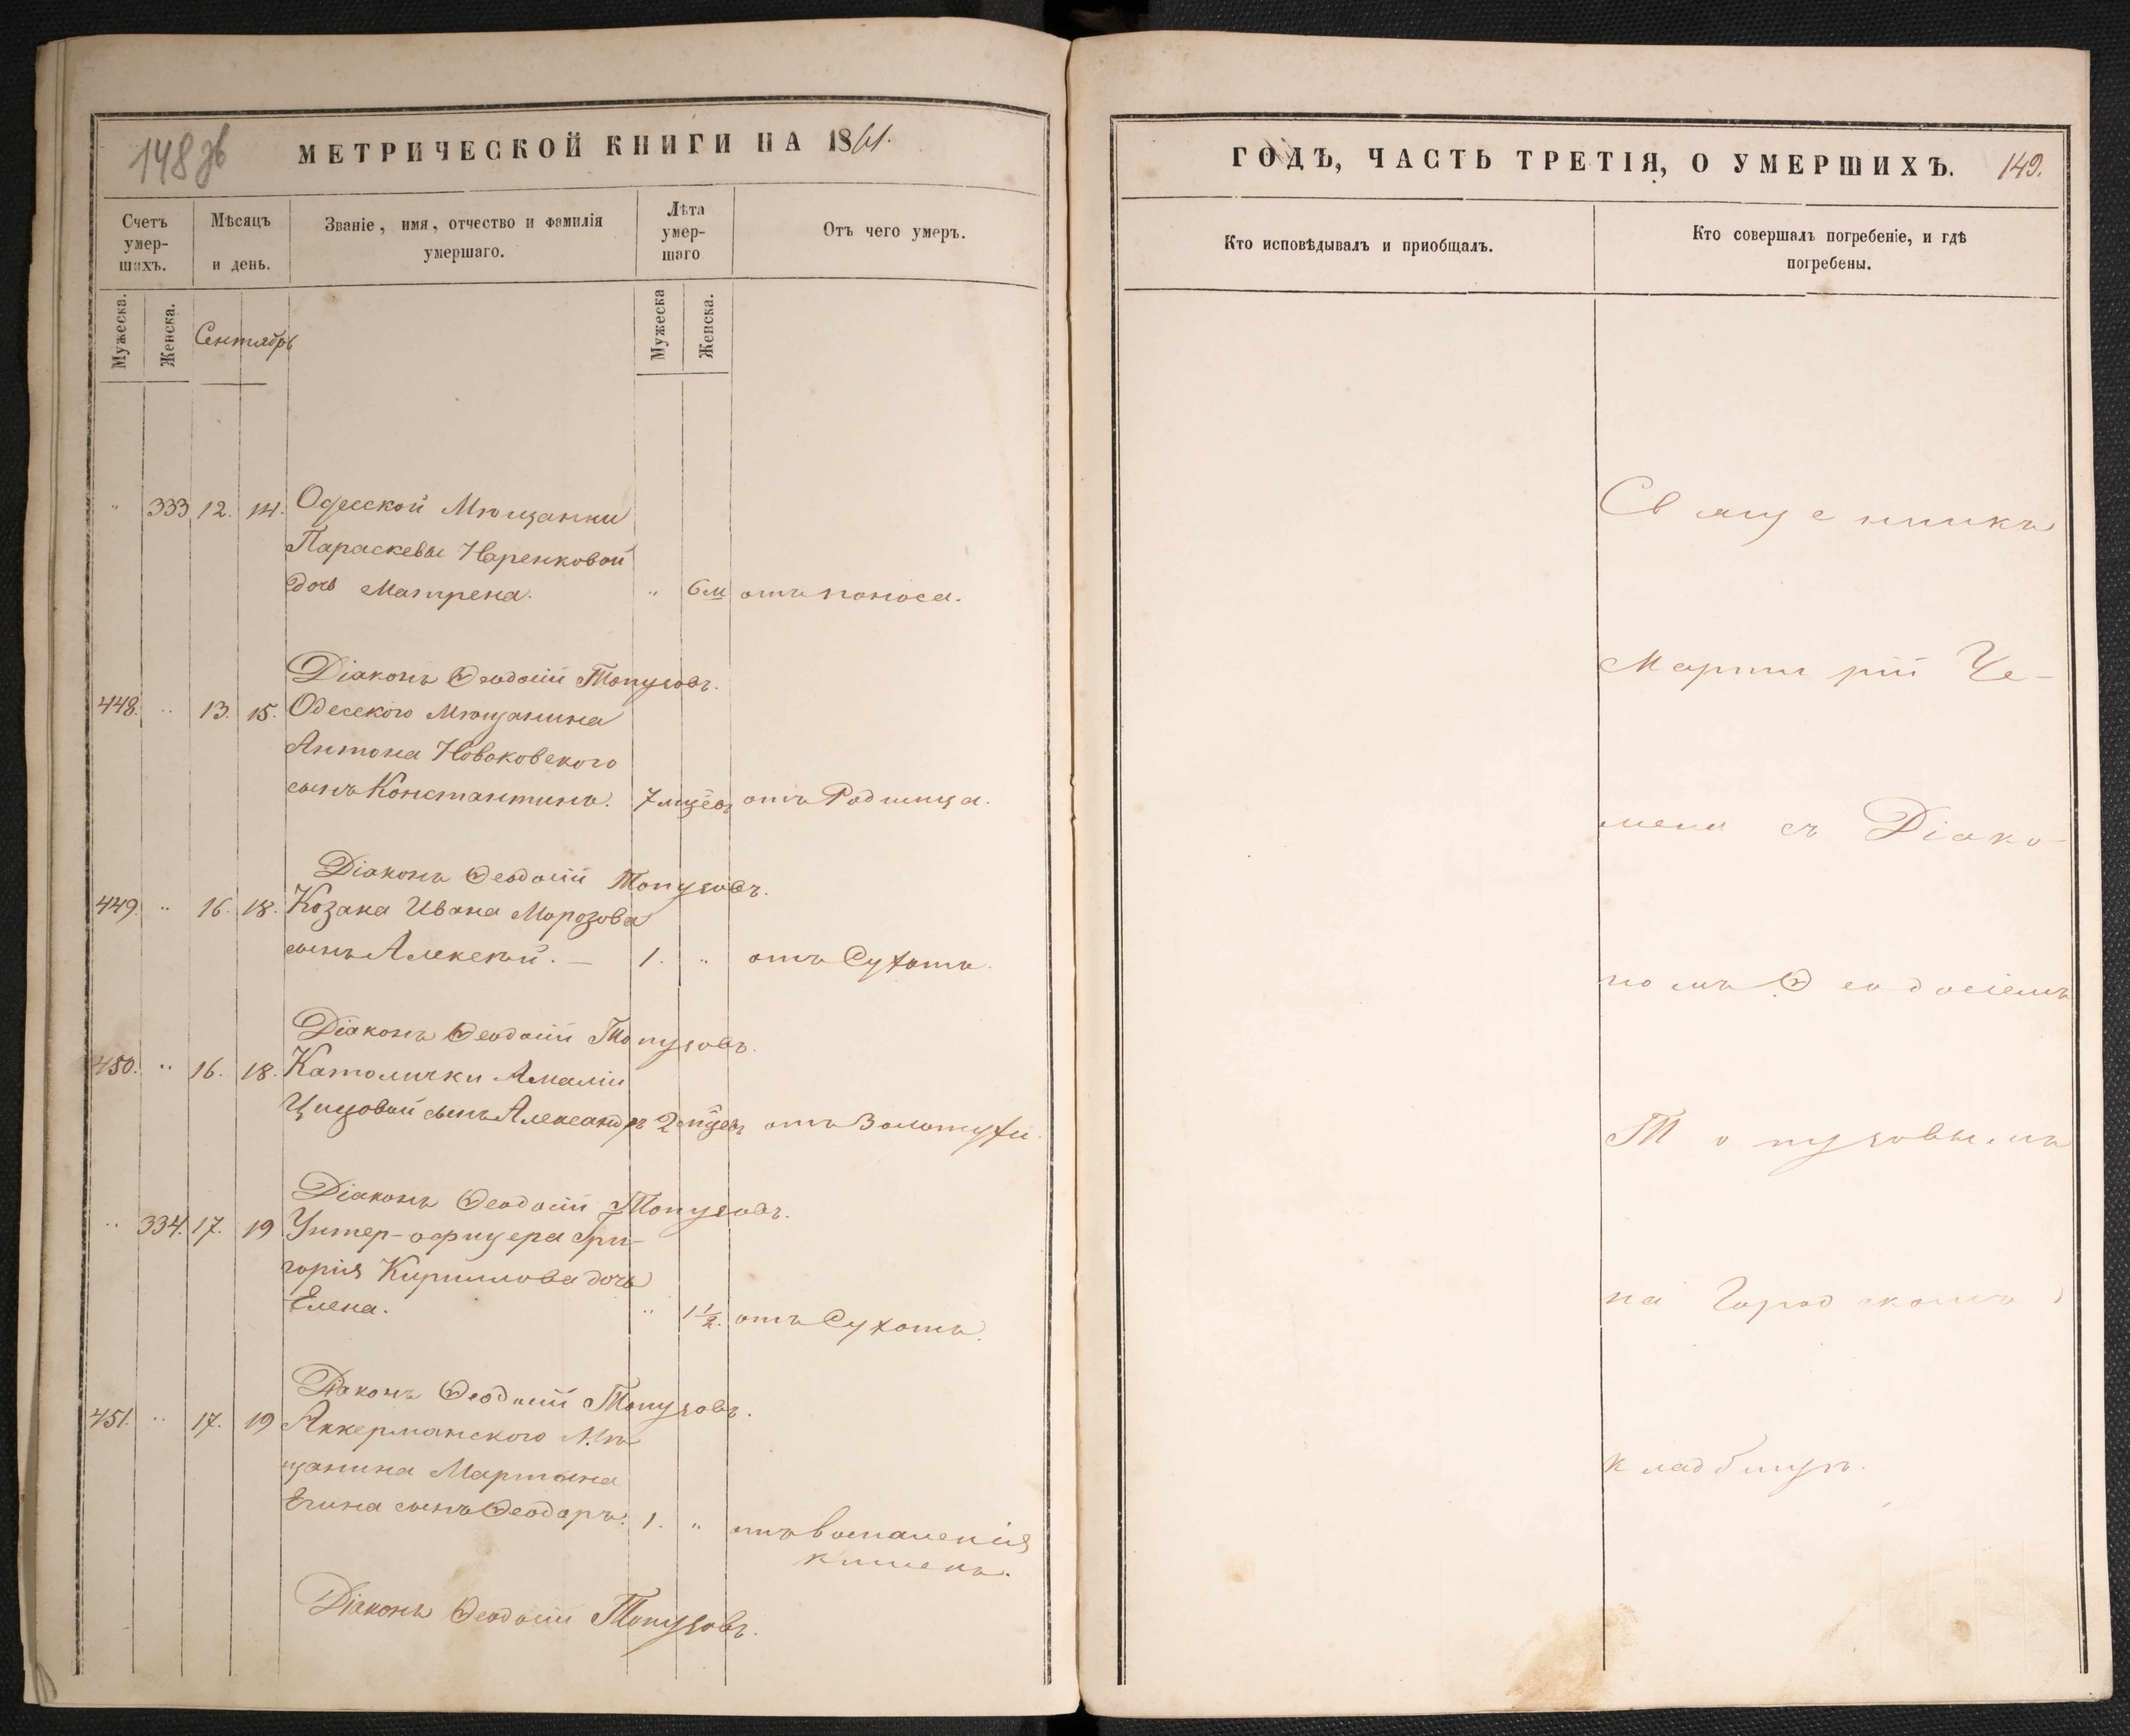 148 зв
МЕТРИЧЕСКОЙ КНИГИ НА 1861.
Счетъ умершихъ.
Мѣсяцъ и день.
Званіе, имя, отчество и фамилія умершаго.
Лѣта умершаго
Отъ чего умеръ.
Мужеска.
Женска.
Сентябрь
Мужеска
Женска.
" 333 12. 14. Одесской Мѣщанки
Параскевы Наренковой
дочь Матрена. " 6 м отъ поноса.
Діаконъ Ѳеодосій Топузовъ.
448. " 13. 15. Одесскаго Мѣщанина
Антона Новаковскаго
сынъ Константинъ. 7 мцевъ отъ Родимца.
Діаконъ Ѳеодосій Топузовъ.
449. " 16. 18. Козака Ивана Морозова
сынъ Алексѣй. — 1. " отъ Сухотъ.
Діаконъ Ѳеодосій Топузовъ.
450. " 16. 18. Католички Амаліи
сынъ Александръ 2 мцевъ отъ Золотухи.
Діаконъ Ѳеодосій Топузовъ.
" 334. 17. 19 Унтер-офицера Гри-
горія Кирилова дочь
Елена. " 1 1/2. отъ Сухотъ.
Діаконъ Ѳеодосій Топузовъ.
451. " 17. 19 Аккерманского Мѣ
щанина Мартына
сынъ Ѳеодоръ. 1. " отъ воспаленія
кишекъ.
Діаконъ Ѳеодосій Топузовъ.
ГОДЪ, ЧАСТЬ ТРЕТІЯ, О УМЕРШИХЪ. 149.
Кто исповѣдывалъ и приобщалъ.
Кто совершалъ погребеніе, и гдѣ
погребены.
Священникъ
Мартирій Че-
мена съ Діако-
номъ Ѳеодосіемъ
Топузовымъ
на Городскомъ
кладбищѣ.